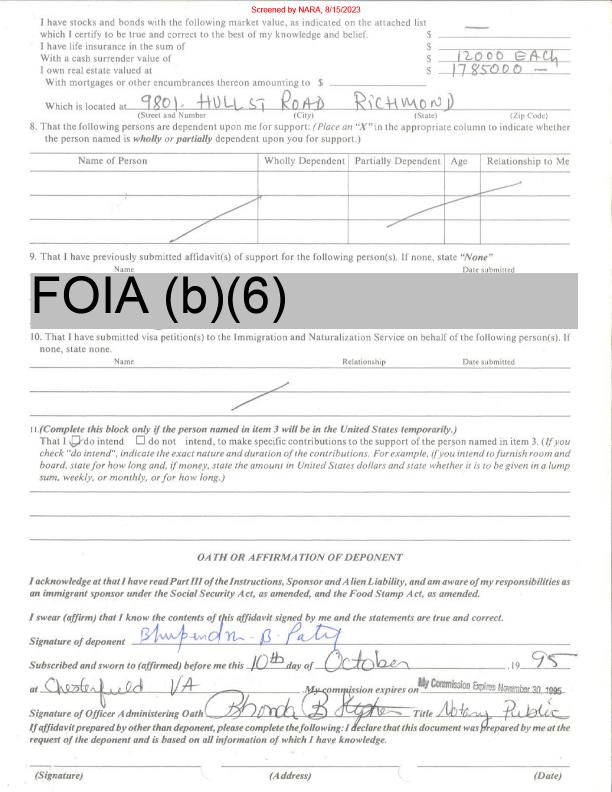 Screened by NARA, 8/15/2023
I have stocks and bonds with the following market value, as indicated on the attached list
which I certify to be true and correct to the best of my knowledge and belief. $ —
I have life insurance in the sum of $
With a cash surrender value of $ 12000 EACH
I own real estate valued at $ 1785000 —
With mortgages or other encumbrances thereon amounting to $
Which is located at 9801. HULL ST ROAD RICHMOND
(Street and Number) (City) (State) (Zip Code)
8. That the following persons are dependent upon me for support: (Place an "X" in the appropriate column to indicate whether
the person named is wholly or partially dependent upon you for support.)
Name of Person Wholly Dependent Partially Dependent Age Relationship to Me
9. That I have previously submitted affidavit(s) of support for the following person(s). If none, state "None"
Name Date submitted
FOIA (b)(6)
10. That I have submitted visa petition(s) to the Immigration and Naturalization Service on behalf of the following person(s). If
none, state none.
Name Relationship Date submitted
11. (Complete this block only if the person named in item 3 will be in the United States temporarily.)
That I do intend do not intend, to make specific contributions to the support of the person named in item 3. (If you
check "do intend", indicate the exact nature and duration of the contributions. For example, if you intend to furnish room and
board, state for how long and, if money, state the amount in United States dollars and state whether it is to be given in a lump
sum, weekly, or monthly, or for how long.)
OATH OR AFFIRMATION OF DEPONENT
I acknowledge at that I have read Part III of the Instructions, Sponsor and Alien Liability, and am aware of my responsibilities as
an immigrant sponsor under the Social Security Act, as amended, and the Food Stamp Act, as amended.
I swear (affirm) that I know the contents of this affidavit signed by me and the statements are true and correct.
Signature of deponent B.
Subscribed and sworn to (affirmed) before me this 10th day of October , 19 95
at Chesterfield VA My commission expires on My Commission Expires November 30, 1995
Signature of Officer Administering Oath Rhonda B Title Notary Public
If affidavit prepared by other than deponent, please complete the following: I declare that this document was prepared by me at the
request of the deponent and is based on all information of which I have knowledge.
(Signature) (Address) (Date)